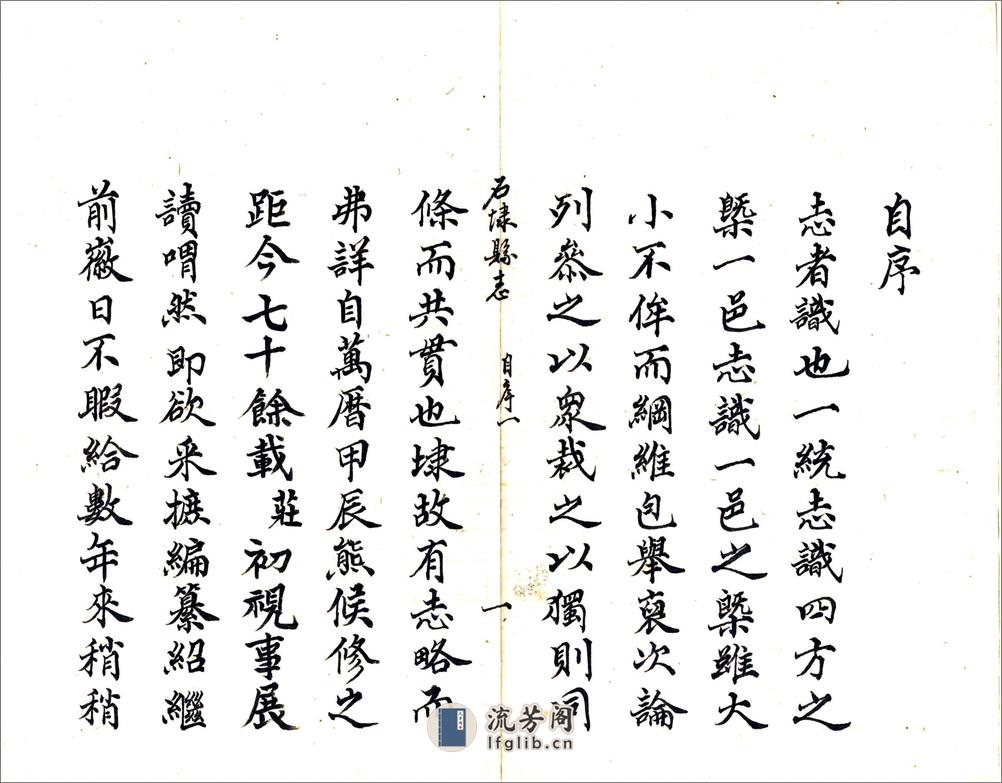 自序
志者識也一統志識四方之
槩一邑志識一邑之槩雖大
小不侔而綱維包舉裒次論
列叅之以衆裁之以獨則同
石埭縣志 自序一 一
條而共貫也埭故有志略而
弗詳自萬曆甲辰熊侯修之
距今七十餘載莊初視事展
讀喟然即欲采摭編纂紹繼
前徽日不暇給數年來稍稍
流芳阁
lfglib.cn